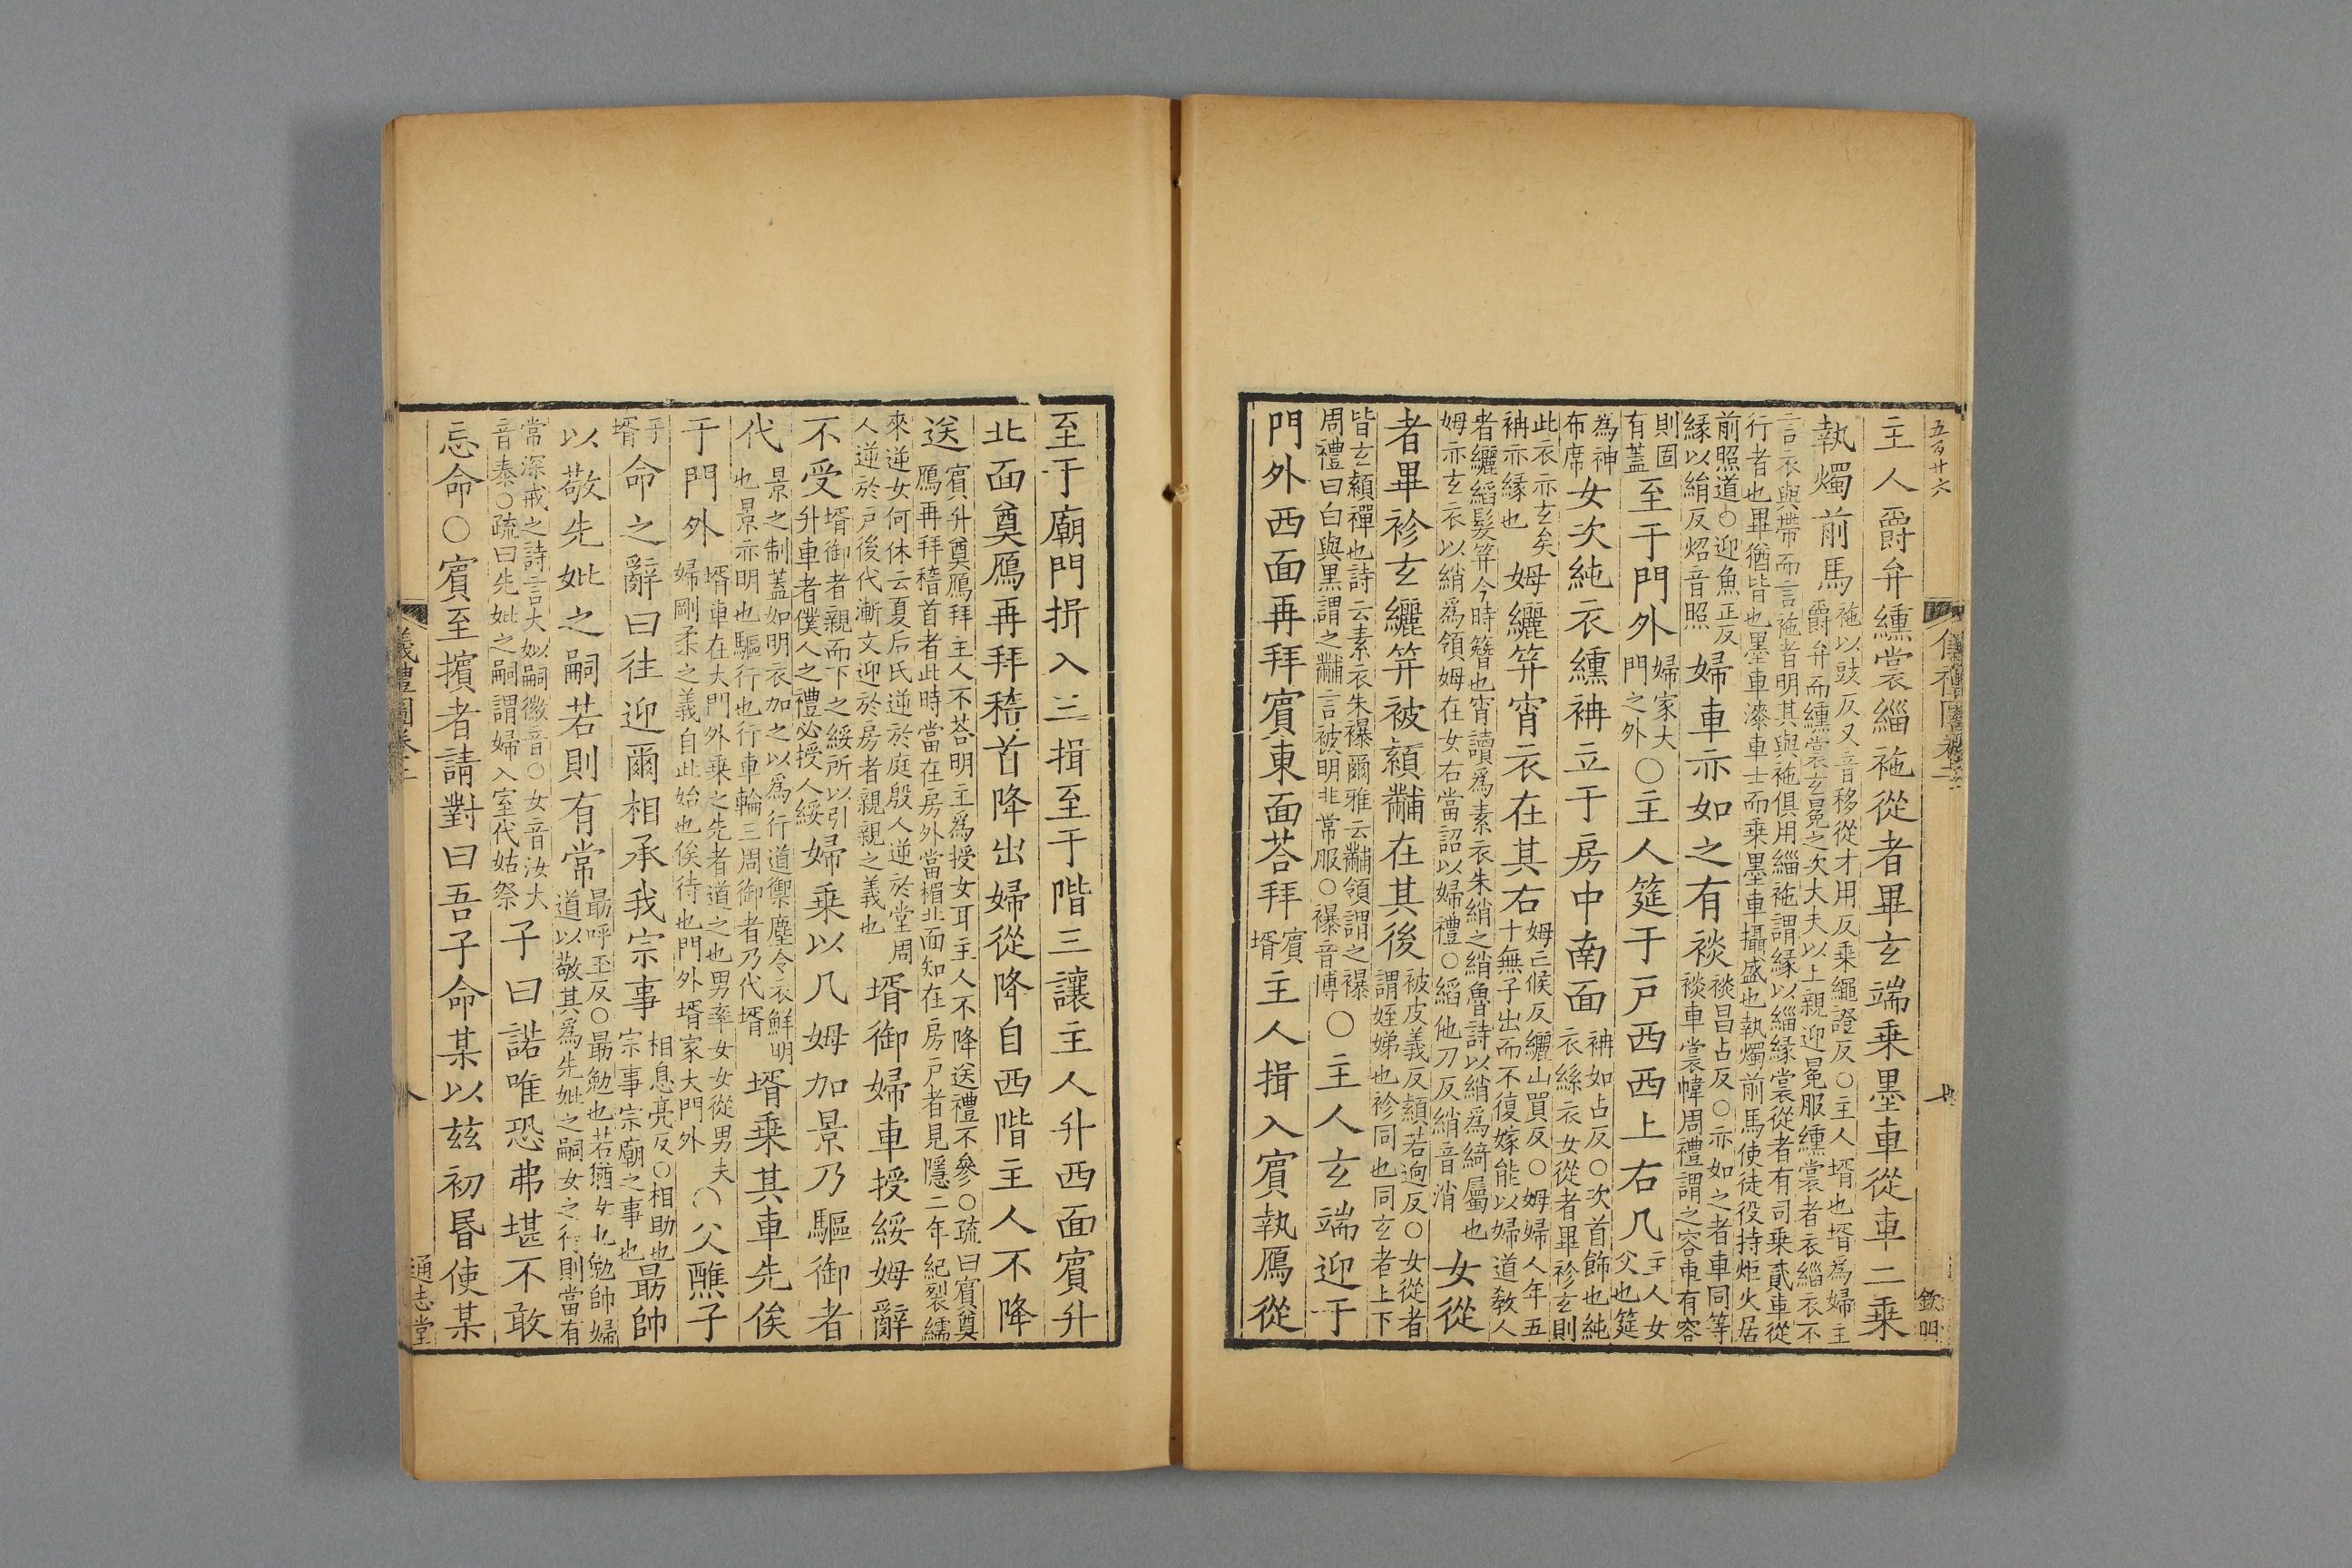 五百廿六
主人爵弁纁裳緇袘從者畢玄端乘墨車從車二乘
執燭前馬袘以豉反又音移從才用反乘繩證反○主人壻也壻為婦主
爵弁而纁裳玄冕之次大夫以上親迎冕服纁裳者衣緇衣不
言衣與帶而言袘者明其與袘俱用緇袘謂緣以緇緣裳從者有司乘貳車從
行者也畢猶皆也墨車漆車士而乘墨車攝盛也執燭前馬使徒役持炬火居
前照道○迎魚正反
緣以絹反炤音照婦車亦如之有裧裧昌占反○亦如之者車同等
裧車裳幃周禮謂之容車有容
則固
有蓋至于門外婦家大
門之外○主人筵于戶西西上右几主人女
父也筵
為神
布席女次純衣纁袡立于房中南面袡如占反○次首飾也純
衣絲衣女從者畢袗玄則
此衣亦玄矣
袡亦緣也姆纚笄宵衣在其右姆亡候反纚山買反○姆婦人年五
十無子出而不復嫁能以婦道教人
者纚縚髮笄今時簪也宵讀為素衣朱綃之綃魯詩以綃為綺屬也
姆亦玄衣以綃為領姆在女右當詔以婦禮○縚他刀反綃音消女從
者畢袗玄纚笄被顈黼在其後被皮義反顈若迥反○女從者
謂姪娣也袗同也同玄者上下
皆玄顈襌也詩云素衣朱襮爾雅云黼領謂之襮
周禮曰白與黑謂之黼言被明非常服○襮音博○主人玄端迎于
門外西面再拜賓東面荅拜賓
壻主人揖入賓執鴈從
至于廟門揖入三揖至于階三讓主人升西面賓升
北面奠鴈再拜稽首降出婦從降自西階主人不降
送賓升奠鴈拜主人不荅明主為授女耳主人不降送禮不參○疏曰賓奠
鴈再拜稽首者此時當在房外當楣北面知在房戶者見隱二年紀裂繻
來逆女何休云夏后氏逆於庭殷人逆於堂周
人逆於戶後代漸文迎於房者親親之義也壻御婦車授綏姆辭
不受壻御者親而下之綏所以引
升車者僕人之禮必授人綏婦乘以几姆加景乃驅御者
代景之制蓋如明衣加之以為行道禦塵令衣鮮明
也景亦明也驅行也行車輪三周御者乃代壻壻乘其車先俟
于門外壻車在大門外乘之先者道之也男率女女從男夫
婦剛柔之義自此始也俟待也門外壻家大門外○父醮子
子
壻命之辭曰往迎爾相承我宗事相息亮反○相助也
宗事宗廟之事也勗帥
以敬先妣之嗣若則有常勗呼玉反○勗勉也若猶女也勉帥婦
道以敬其為先妣之嗣女之行則當有
常深戒之詩言大姒嗣徽音○女音汝大
音泰○疏曰先妣之嗣謂婦入室代姑祭子曰諾唯恐弗堪不敢
忘命○賓至擯者請對曰吾子命某以茲初昏使某
儀禮圖卷二
八
通志堂